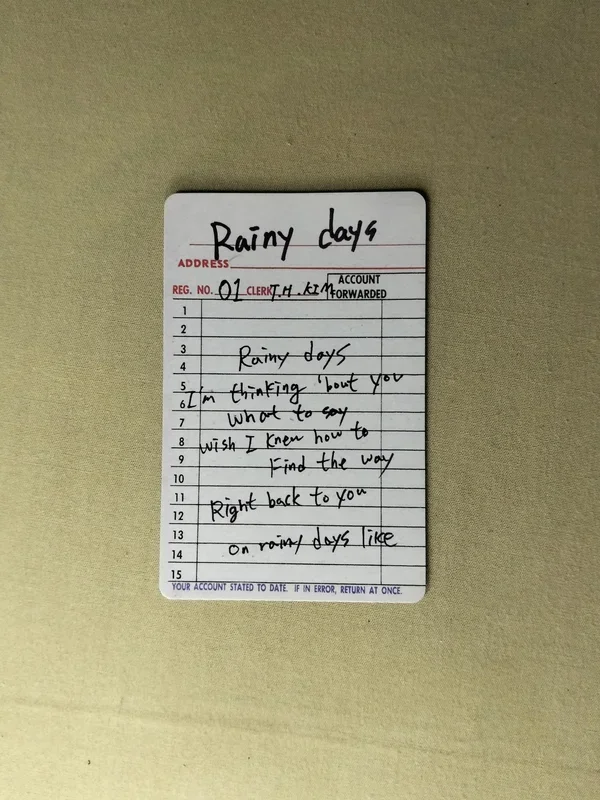 Rainy days
ADDRESS
REG. NO. 01 CLERK T.H.KIM ACCOUNT FORWARDED
1
2
3 Rainy days
4
5 I'm thinking 'bout you
6
7 What to say
8 wish I knew how to
9 Find the way
10
11 Right back to you
12
13 on rainy days like
14
15
YOUR ACCOUNT STATED TO DATE. IF IN ERROR, RETURN AT ONCE.